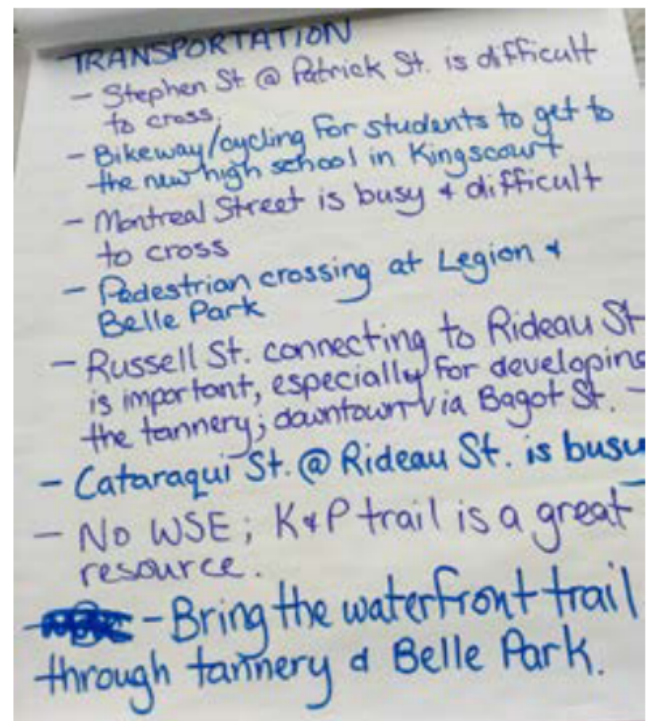 TRANSPORTATION
- Stephen St @ Patrick St. is difficult
to cross.
- Bikeway/cycling for students to get to
the new high school in Kingscourt
- Montreal Street is busy & difficult
to cross
- Pedestrian crossing at Legion &
Belle Park
- Russell St. connecting to Rideau St
is important, especially for developing
the tannery; downtown via Bagot St. -
- Cataraqui St. @ Rideau St. is busy
- No WSE; K&P trail is a great
resource.
- Bring the waterfront trail
through tannery & Belle Park.